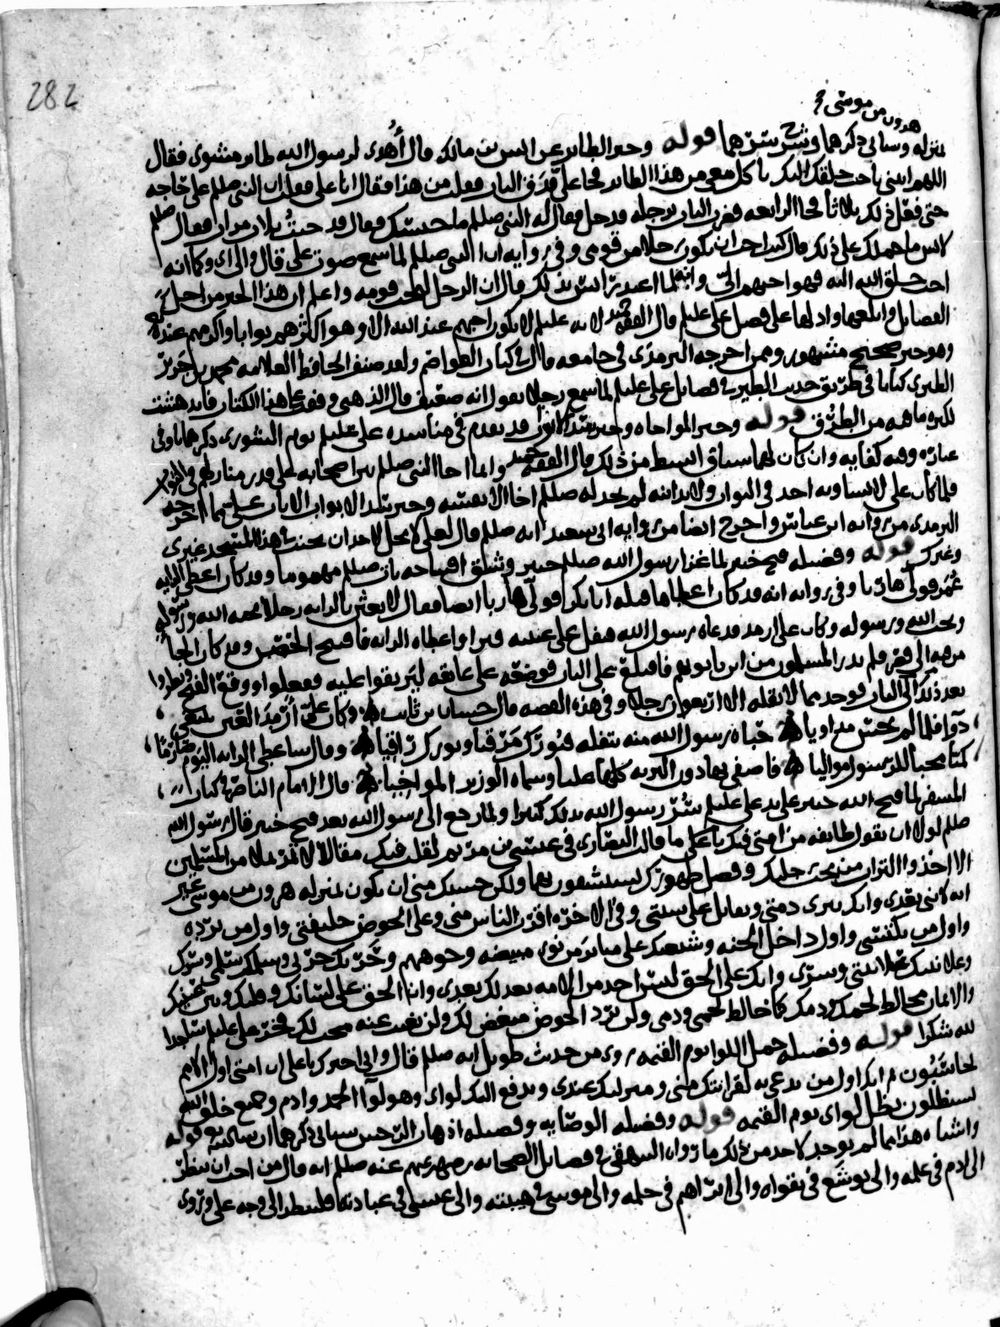 282
هرون من موسى
بمنزله وسياتي ذكرهما وشرح سترهما قوله وخبر الطاير عن انس بن مالك قال أُهدى لرسول الله طاير مشوي فقال
اللهم ايتني باحب خلقك اليك ياكل معي من هذا الطاير فجا علي فدق الباب فقلت من هذا فقال انا علي فقلت ان النبي صلم على حاجه
حتى فعل ذلك ثلاثا فجا الرابعه فضرب الباب برجله فدخل فقال له النبي صلم ما حبسك فقال قد جيت ثلاث مرار فقال صلم
لانس ما حملك على ذلك قال كنت احب ان يكون رجلا من قومي وفي روايه ان النبي صلم لما سمع صوت علي قال والي اي وكانه
احب خلق الله اليه فهو احبهم الى وانما اعتذر انس بذلك قال ان الرجل يحب قومه واعلم ان هذا الخبر من اجل
الفضايل وابلغها وادلها على فضل علي عليلم قال الفقيه حميد لانه عليلم لا يكون احبهم عند الله الا وهو اكثرهم ثوابا واكرمهم عنده
وهو خبر صحيح مشهور وممن اخرجه الترمذي في جامعه قال في كتاب العواصم ولقد صنف الحافظ العلامه محمد بن جرير
الطبري كتابا في طريق حديث الطير في فضايل علي عليلم لما سمع رجلا يقول انه ضعيف قال الذهبي وقفت على هذا الكتاب فاندهشت
لكثره ما فيه من الطرق قوله وخبر المواخاه وخبر سد الابواب قد تقدم في مناشده علي عليلم يوم الشورى ذكرهما وفي
عباره وفيه كفايه وان كان لهما سياق ابسط من ذلك قال الفقيه حميد وانما اخا النبي صلم بين اصحابه على قدر منازلهم في
فلما كان علي لا يساويه احد في الثواب ولا يدانيه لم يجد له صلم اخا الا نفسه وخبر سد الابواب الا باب علي اخرجه
الترمذي من روايه ابن عباس واخرج ايضا من روايه ابي سعيد انه صلم قال لعلي لا يحل لاحد ان يجنب في هذا المسجد غيري
وغيرك قوله وفضيله فتح خيبر لما غزا رسول الله صلم خيبر وشق افتتاحه بات صلم مهموما وقد كان اعطى الرايه
عُمر فولى هاربا وفي روايه انه قد كان اعطاها قبله ابا بكر فولى هاربا ايضا فقال لا بعثن بالرايه رجلا يحبه الله ورسوله
ويحب الله ورسوله وكان علي ارمد فدعاه رسول الله فتفل على عينيه فبرا واعطاه الرايه فافتتح الحصن وقد كان الجا
فلم يدر المسلمون من اين ياتونهم فاقتلع علي الباب فوضعه على عاتقه ليرتقوا عليه ففعلوا ووقع الفتح ونظروا
بعد ذلك الى الباب فوجدوها لا يقله الا اربعون رجلا وفي هذه القصه قال حسان بن ثابت وكان علي أرمد العين يبتغي
دوا فلما لم يحس مداويا حباه رسول الله منه بتفله فبورك مرقيا وبورك راقيا وقال ساعطي الرايه اليوم صارما
كميا محبا للرسول مواليا فاصفى بها دون البريه كلها عليا وسماه الوزير المواخيا قال الامام الناصر في كتاب
المسفر لما فتح الله خيبر على يد علي عليلم سُرّ رسول الله بذلك كثيرا ولما رجع الى رسول الله بعد فتح خيبر قال رسول الله
صلم لولا ان يقول طايفه من امتي فيك يا علي ما قالت النصارى في عيسى بن مريم لقلت فيك مقالا لا تمر بملا من المسلمين
الا اخذوا التراب من تحت رجليك وفضل طهورك يستشفون بهما ولكن حسبك مني ان تكون بمنزله هرون من موسى غير
انه لا نبي بعدي وانك تبري ذمتي وتقاتل على سنتي وفي الاخره اقرب الناس مني وعلى الحوض خليفتي واول من يرده
واول من يكتسي واول داخل الجنه وشيعتك على منابر من نور مبيضه وجوههم وحربك حربي وسلمك سلمي وسرك
وعلانيتك علانيتي وسري وانك على الحق ليس احد من الامه يعد لك بعدي وان الحق على لسانك وقلبك وبين عينيك
والايمان مخالط لحمك ودمك كما خالط لحمي ودمي ولن يرد الحوض مبغض لك ولن يغيب عنه محب لك فخر علي عليلم ساجدا
لله شكرا قوله وفضيله حمل اللوا يوم القيمه روى من حديث طويل انه صلم قال واني اخبرك يا علي ان امتي اول الامم
يحاسَبُون ثم انك اول من يدعى به لقرابتك مني ومنزلتك عندي ويدفع اليك لوائي وهو لوا الحمد وادم وجميع خلق الله
يستظلون بظل لواي يوم القيمه قوله وفضيله الوصايه وفضيله اذهاب الرجس سياتي ذكرهما ان شا الله تع قوله
واشباه هذا مما لم يوجد لاحد من ذلك ما رواه البيهقي في فضايل الصحابه رضي عنهم عنه صلم انه قال من احب ان ينظر
الى ادم في علمه والى يوشع في تقواه والى ابراهيم في حلمه والى موسى في هيبته والى عيسى في عبادته فلينظر الى وجه علي وروى